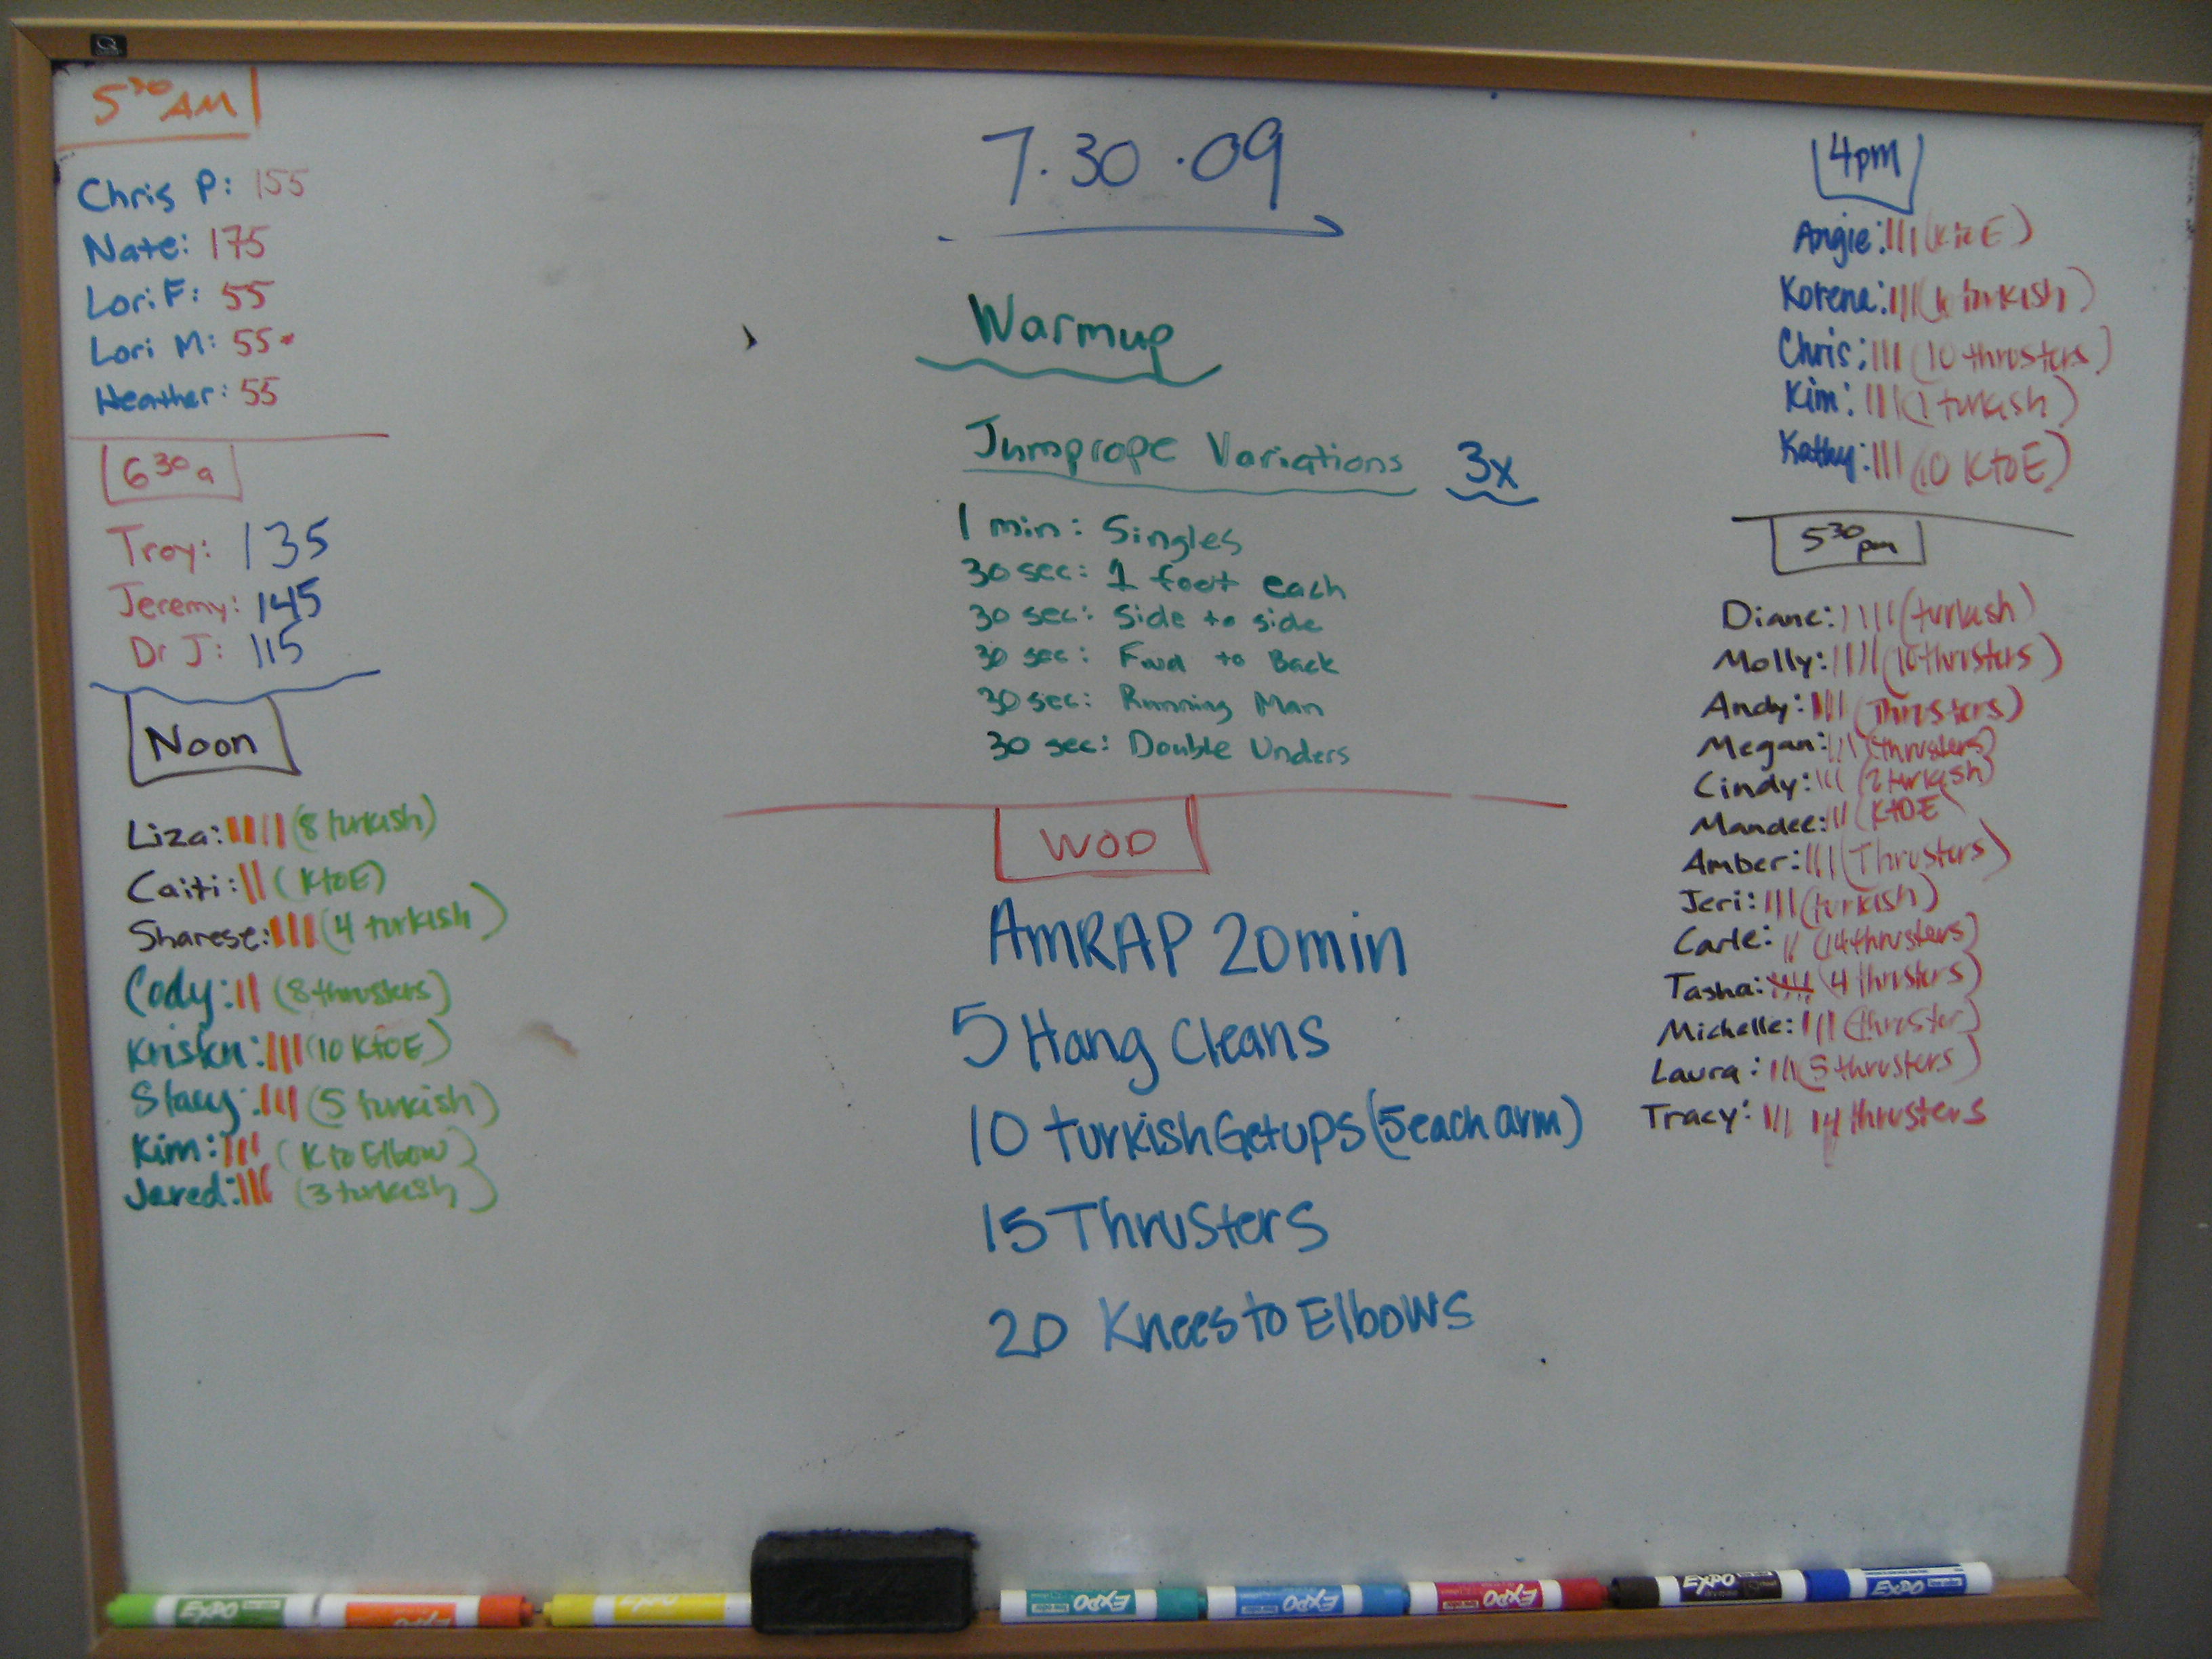 5³⁰ AM
Chris P: 155
Nate: 175
Lori F: 55
Lori M: 55*
Heather: 55
6³⁰a
Troy: 135
Jeremy: 145
Dr J: 115
Noon
Liza: |||| (8 turkish)
Caiti: || (KtoE)
Sharese: ||| (4 turkish)
Cody: || (8 thrusters)
Kristin: ||| (10 KtoE)
Stacy: ||| (5 turkish)
Kim: ||| (K to Elbow)
Jared: ||| (3 turkish)
7.30.09
Warmup
Jumprope Variations 3x
1 min: Singles
30 sec: 1 foot each
30 sec: Side to side
30 sec: Fwd to Back
30 sec: Running Man
30 sec: Double Unders
WOD
AmRAP 20min
5 Hang Cleans
10 turkish Getups (5 each arm)
15 Thrusters
20 Knees to Elbows
4pm
Angie: ||| (KtoE)
Korena: ||| turkish)
Chris: ||| (10 thrusters)
Kim: ||| (1 turkish)
Kathy: ||| (10 KtoE)
5³⁰pm
Diane: |||| (turkish)
Molly: |||| (10 thrusters)
Andy: ||| (Thrusters)
Megan: ||| (thrusters)
Cindy: ||| (2 turkish)
Mandee: ||| (KtOE
Amber: ||| (Thrusters)
Jeri: ||| (turkish)
Carle: || (14 thrusters)
Tasha: (4 thrusters)
Michelle: ||| (thruster)
Laura: ||| (5 thrusters)
Tracy: ||| 14 thrusters
EXPO
EXPO
EXPO
EXPO
EXPO
EXPO
EXPO
EXPO